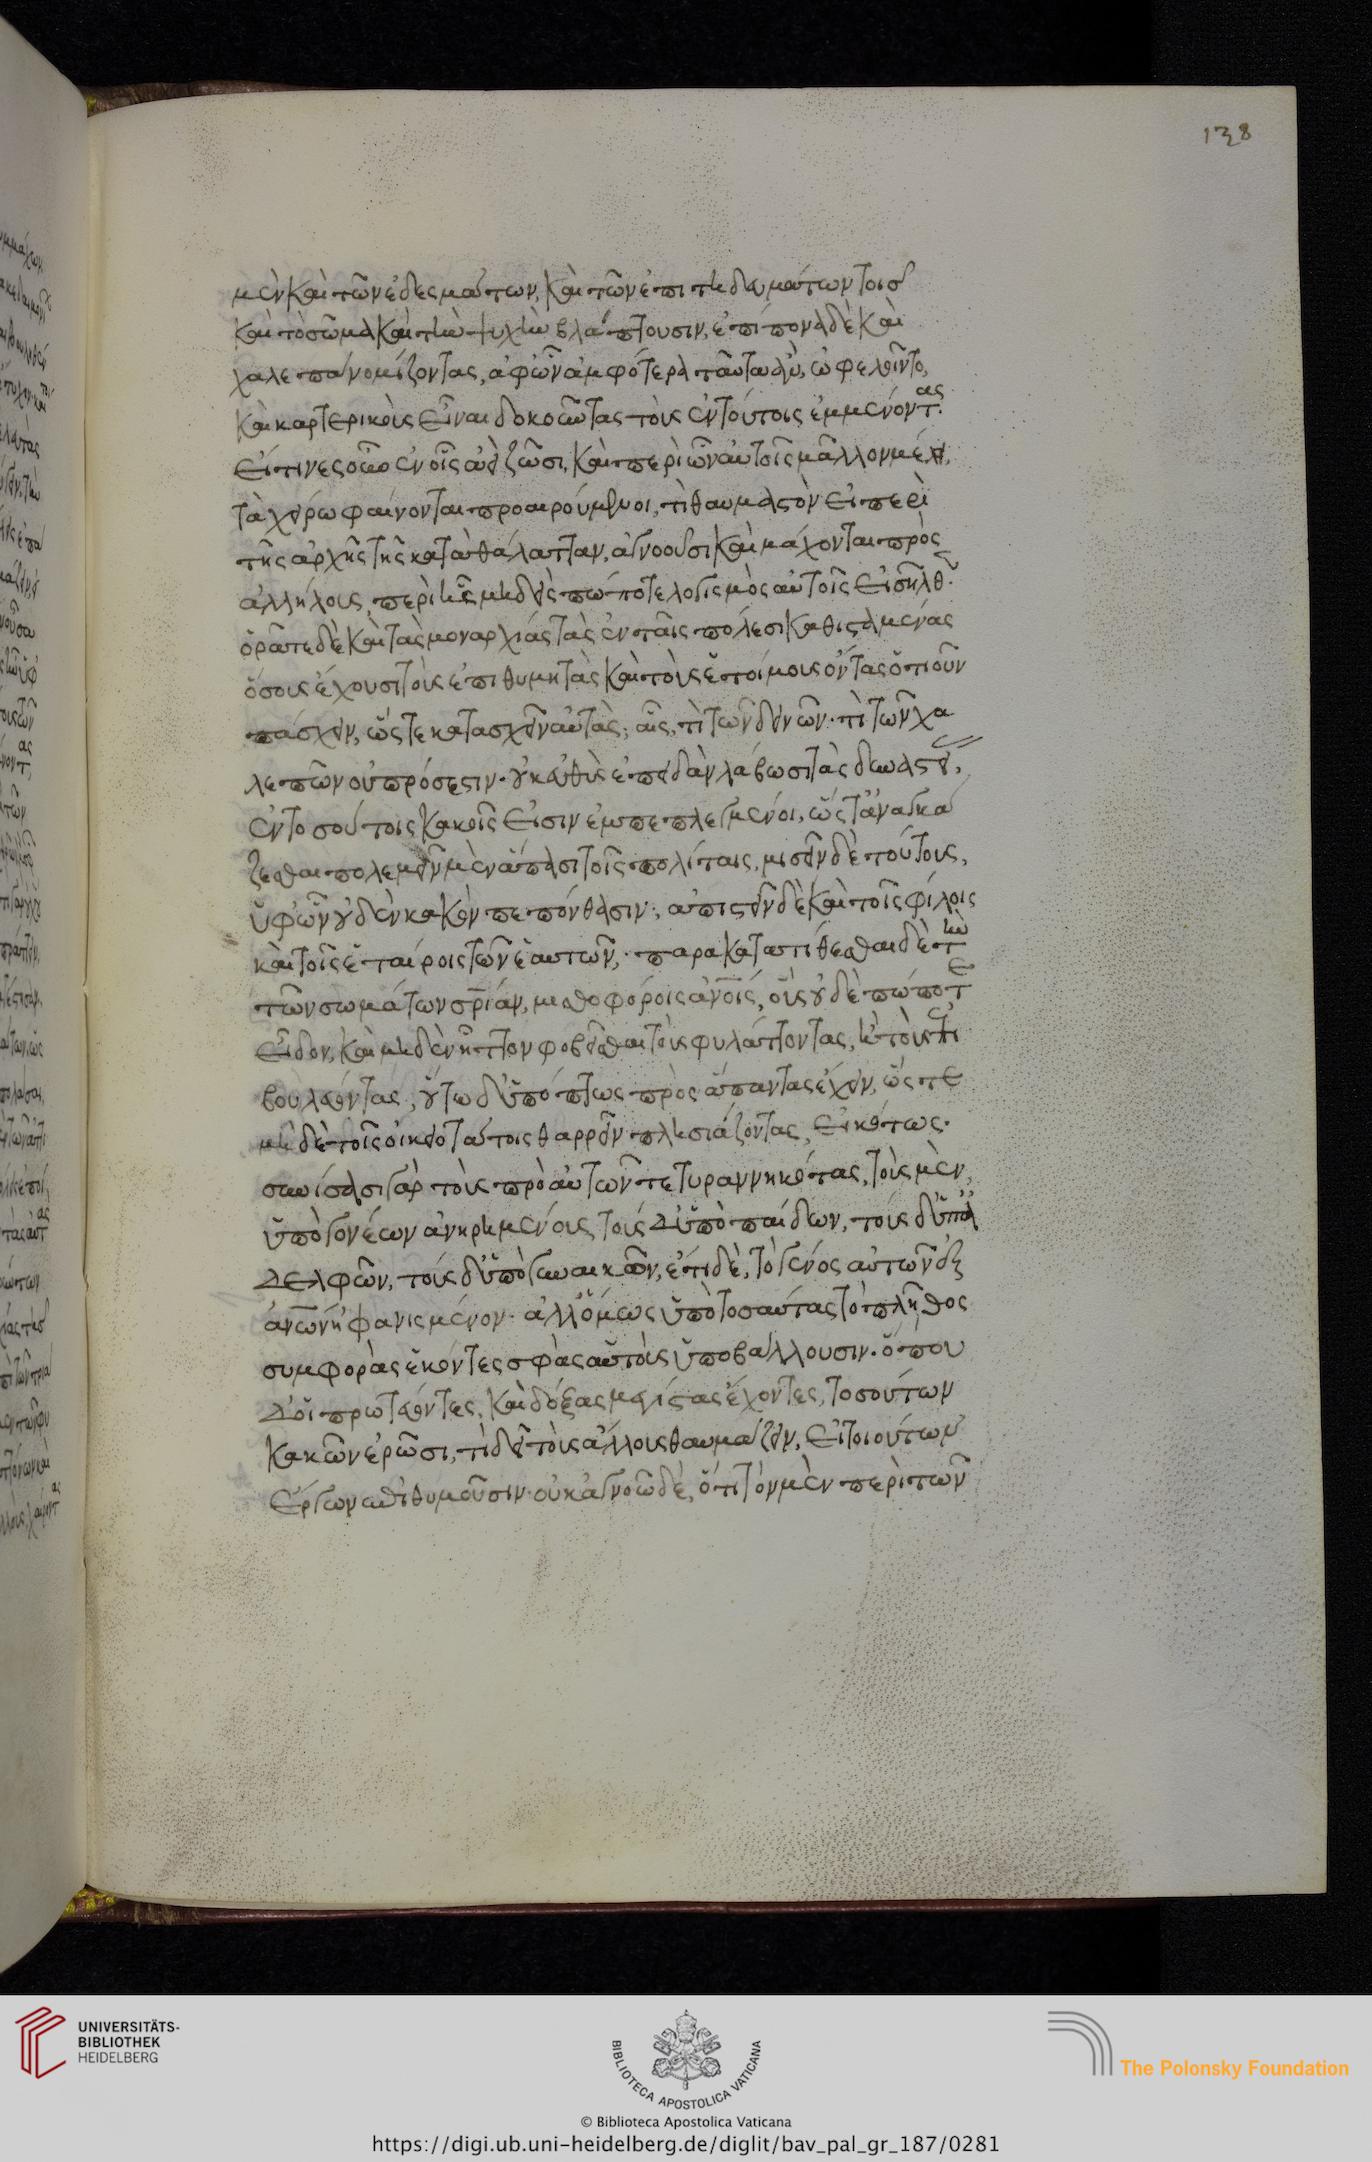 μὲν καὶ τῶν ἐδεσμάτων, καὶ τῶν ἐπιτηδευμάτων τοῖς
καὶ τὸ σῶμα καὶ τὴν ψυχὴν βλάπτουσιν, ἐπίπονα δὲ καὶ
χαλεπὰ νομίζοντας, ἀφ' ὧν ἀμφότερα ταῦτα ἂν, ὠφελοῖντο,
καὶ καρτερικοὺς εἶναι δοκοῦντας τοὺς ἐν τούτοις ἐμμένοντας.
εἵτινες οὖν ἐν οἷς ἀεὶ ζῶσι, καὶ περὶ ὧν αὐτοῖς μᾶλλον μέλει,
τὰ χείρω φαίνονται προαιρούμενοι, τί θαυμαστὸν εἰ περὶ
τῆς ἀρχῆς τῆς κατὰ θάλατταν, ἀγνοοῦσι καὶ μάχονται πρὸς
ἀλλήλους, περὶ ἧς μηδεὶς πώποτε λογισμὸς αὐτοῖς εἰσῆλθεν.
ὁρᾶτε δὲ καὶ τὰς μοναρχίας τὰς ἐν ταῖς πόλεσι καθισταμένας
ὅσους ἔχουσι τοὺς ἐπιθυμητὰς καὶ τοὺς ἑτοίμους ὄντας ὁτιοῦν
πάσχειν, ὥστε κατασχεῖν αὐτὰς, αἷς, τί τῶν δεινῶν. τί τῶν χα
λεπῶν οὐ πρόσεστιν. οὐκ εὐθὺς ἐπειδὰν λάβωσι τὰς δυναστείας,
ἐν τοσούτοις κακοῖς εἰσιν ἐμπεπλεγμένοι, ὥστ' ἀναγκά
ζεσθαι πολεμεῖν μὲν ἅπασι τοῖς πολίταις, μισεῖν δὲ τούτους,
ὑφ' ὧν οὐδὲν κακὸν πεπόνθασιν, ἀπιστεῖν δὲ καὶ τοῖς φίλοις
καὶ τοῖς ἑταίροις τῶν ἑαυτῶν, παρακατατίθεσθαι δὲ τὴν
τῶν σωμάτων σρίαν, μισθοφόροις ἀνοις, οὓς οὐδὲ πώποτε
εἶδον, καὶ μηδὲν ἧττον φοβεῖσθαι τοὺς φυλάττοντας, ἢ τοὺς ἐπι
βουλεύοντας, οὕτω δ' ὑπόπτως πρὸς ἅπαντας ἔχειν, ὥστε
μηδὲ τοῖς οἰκειοτάτοις θαρρεῖν πλησιάζοντας, εἰκότως.
συνίσασι γὰρ τοὺς πρὸ αὐτῶν τετυραννηκότας, τοὺς μὲν,
ὑπὸ γονέων ἀνῃρημένους τοὺς δ' ὑπὸ παίδων, τοὺς δ' ὑπ' ἀ
δελφῶν, τοὺς δ' ὑπὸ γυναικῶν, ἔτι δὲ, τὸ γένος αὐτῶν ἐξ
ἀνων ἠφανισμένον. ἀλλ' ὅμως ὑπὸ τοσαύτας τὸ πλῆθος
συμφορὰς ἑκόντες σφᾶς αὐτοὺς ὑποβάλλουσιν. ὅπου
δ' οἱ πρωτεύοντες, καὶ δόξας μεγίστας ἔχοντες, τοσούτων
κακῶν ἐρῶσι, τί δεῖ τοὺς ἄλλους θαυμάζειν, εἰ τοιούτων
ἔργων ἐπιθυμοῦσιν. οὐκ ἀγνοῶ δὲ, ὅτι τὸν μὲν περὶ τῶν
138
UNIVERSITÄTS-
BIBLIOTHEK
HEIDELBERG
BIBLIOTECA APOSTOLICA VATICANA
The Polonsky Foundation
© Biblioteca Apostolica Vaticana
https://digi.ub.uni-heidelberg.de/diglit/bav_pal_gr_187/0281